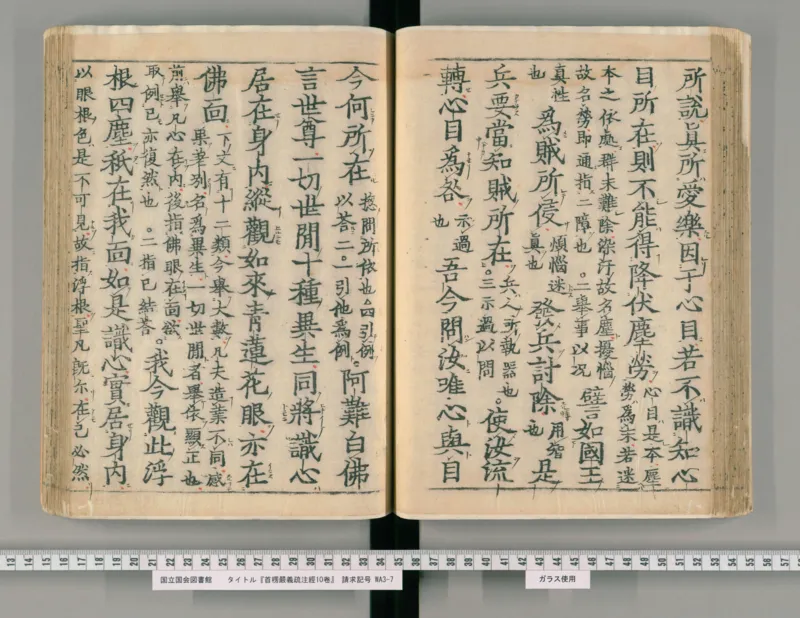 所說眞所愛樂因于心目若不識知心
目所在則不能得降伏塵勞
心目是本塵
勞為末若迷
本之依處群末難除染汙故名塵擾惱
故名勞即通指二障也○二舉事以况
譬如國王
真性
也
為賊所侵
煩惱迷
真也
發兵討除
用智
也
是
兵要當知賊所在
兵人所執器也
○三示過以問
使汝流
轉心目為咎
示過
也
吾今問汝唯心與目
今何所在
揔問所依也○四引例
以答二○一引他為例
阿難白佛
言世尊一切世間十種異生同將識心
居在身內縱觀如來青蓮花眼亦在
佛面
下文有十二類今舉大數凡夫造業不同感
果差別名為異生一切世間者舉依顯正也
前舉凡心在內後指佛眼在面欲
取例已亦復然也○二指已結答
我今觀此浮
根四塵秖在我面如是識心實居身內
以眼根色是不可見故指浮根聖凡既尒在己必然
国立国会図書館 タイトル『首楞嚴義疏注經10巻』 請求記号 WA3-7
ガラス使用